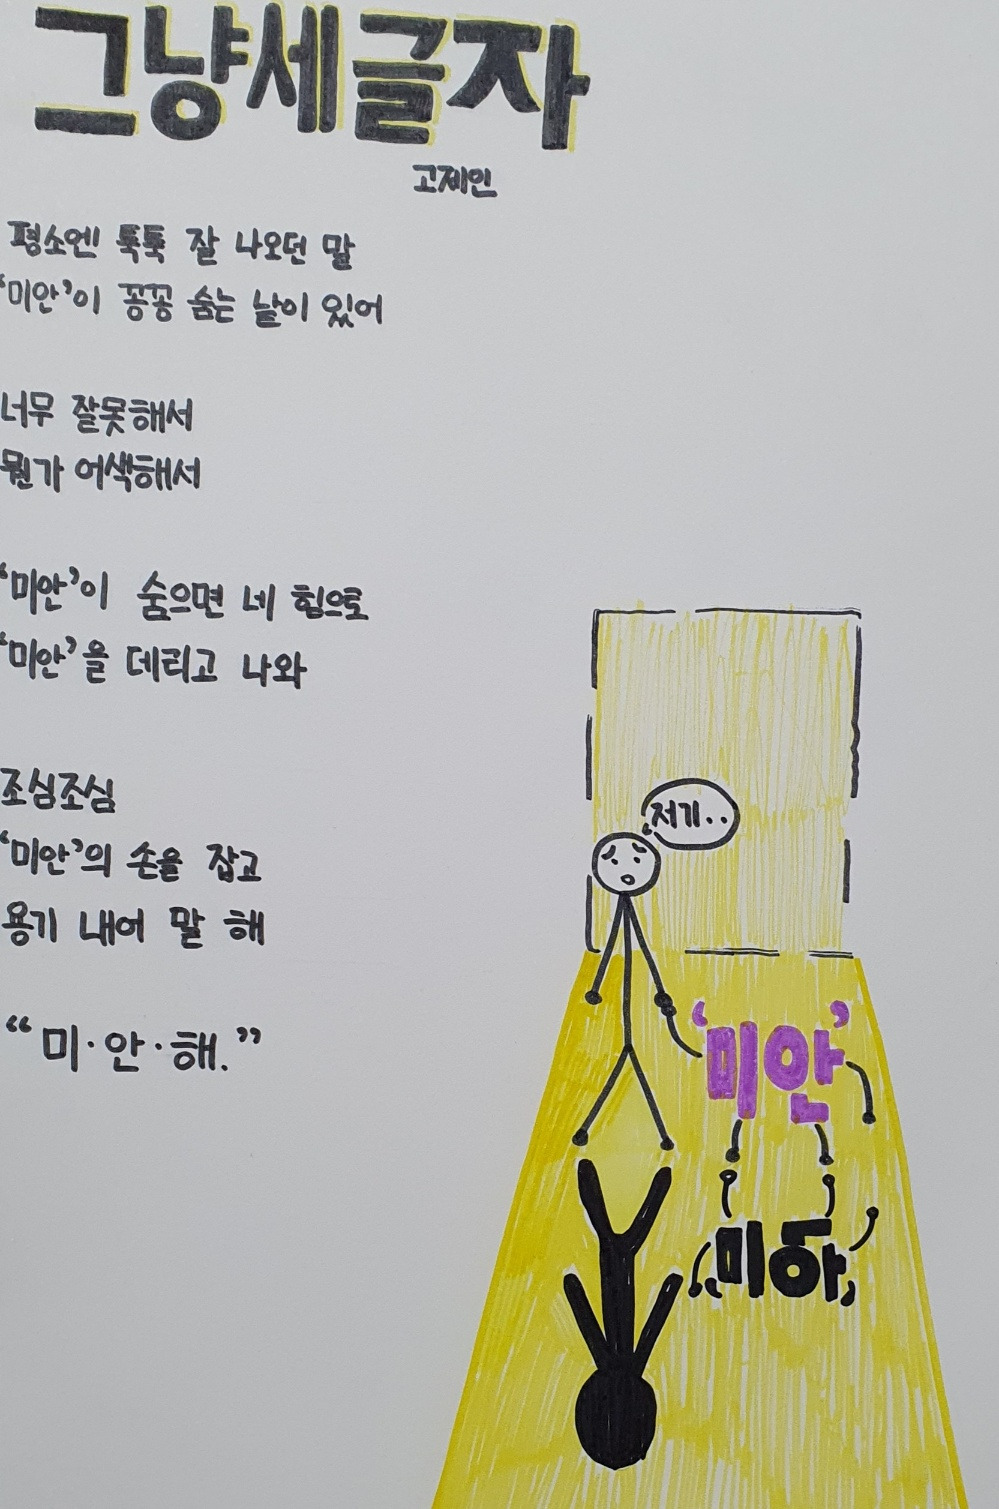 그냥세글자
고제인
평소엔 툭툭 잘 나오던 말
'미안'이 꽁꽁 숨는 날이 있어
너무 잘못해서
뭔가 어색해서
'미안'이 숨으면 네 힘으로
'미안'을 데리고 나와
조심조심
'미안'의 손을 잡고
용기 내어 말 해
“미·안·해.”
저기..
'미안'